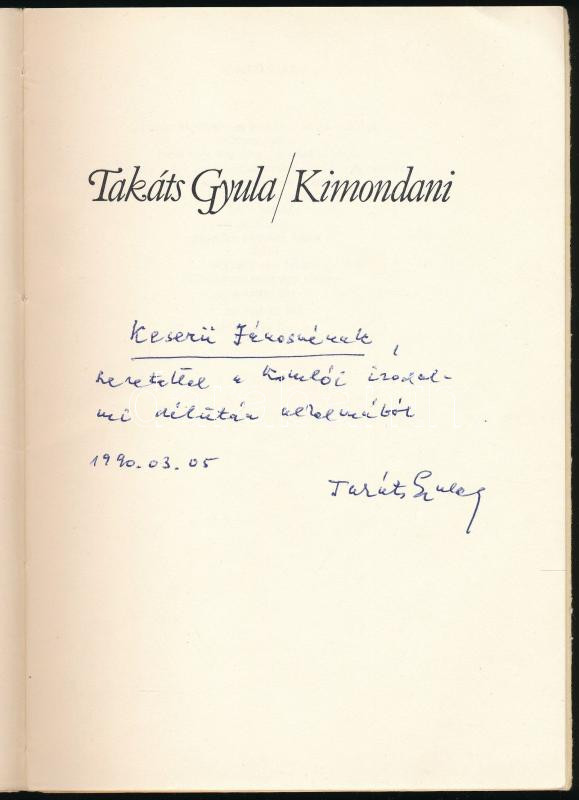 Takáts Gyula/Kimondani
Keserü Jánosnénak,
szeretettel a Komlói irodal-
mi délután alkalmából
1990.03.05
Takáts Gyula